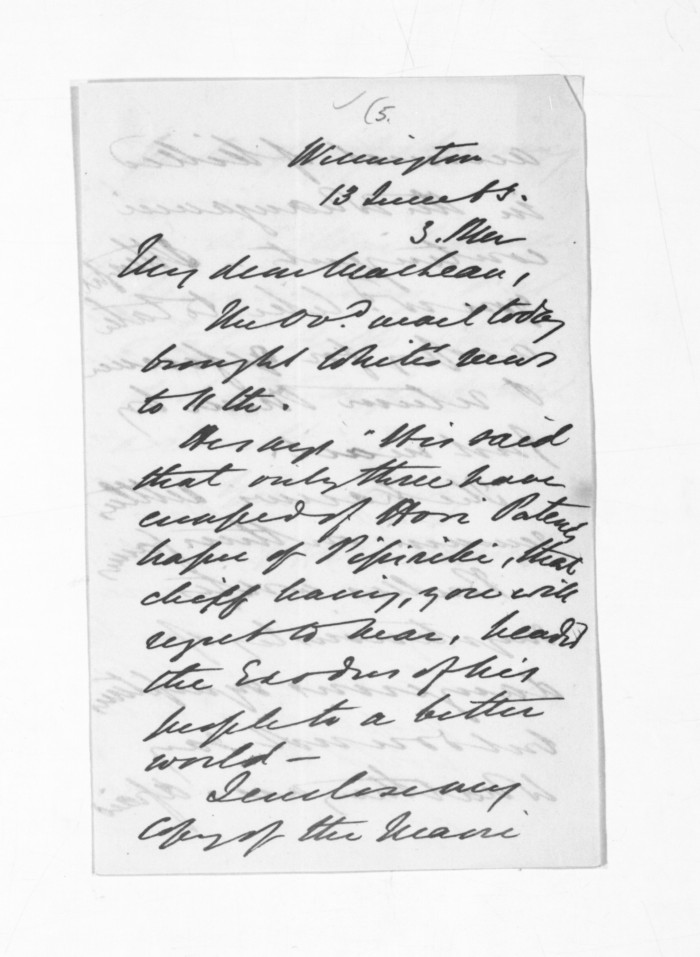 (5.
Wellington
13 June 65.
3. PM
My dear MacLean,
The Ov.d mail today
brought White's news
to 11th.
He says "It is said
that only three have
escaped of Hori Patene's
hapu of Pipiriki, that
chief having, you will
regret to hear, headed
the Exodus of his
people to a better
world —
I enclose my
copy of the Maori